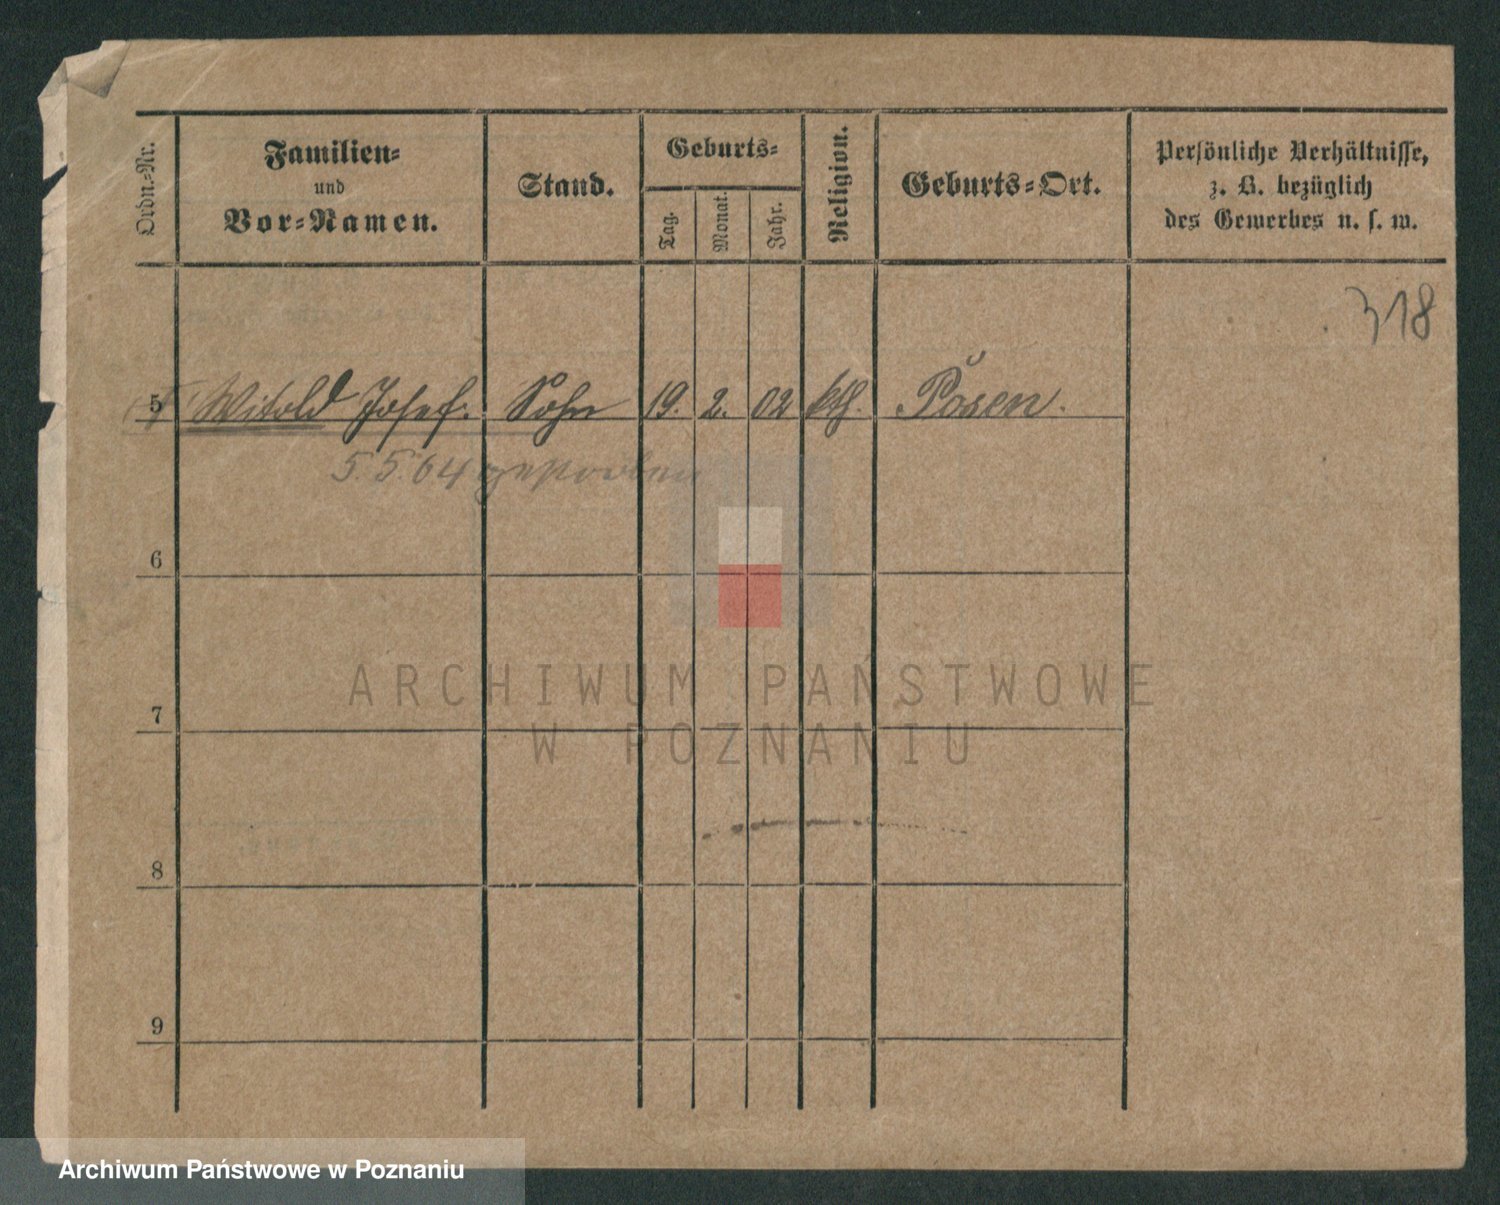 Ordn.-Nr.
Familien-
und
Vor-Namen.
Stand.
Geburts-
Tag.
Monat.
Jahr.
Religion.
Geburts-Ort.
Persönliche Verhältnisse,
z. B. bezüglich
des Gewerbes u. s. w.
318
5 Witold Josef. Sohn 19. 2. 02 kth. Posen.
5.5.04 gestorben
6
7
8
9
ARCHIWUM PAŃSTWOWE
W POZNANIU
Archiwum Państwowe w Poznaniu